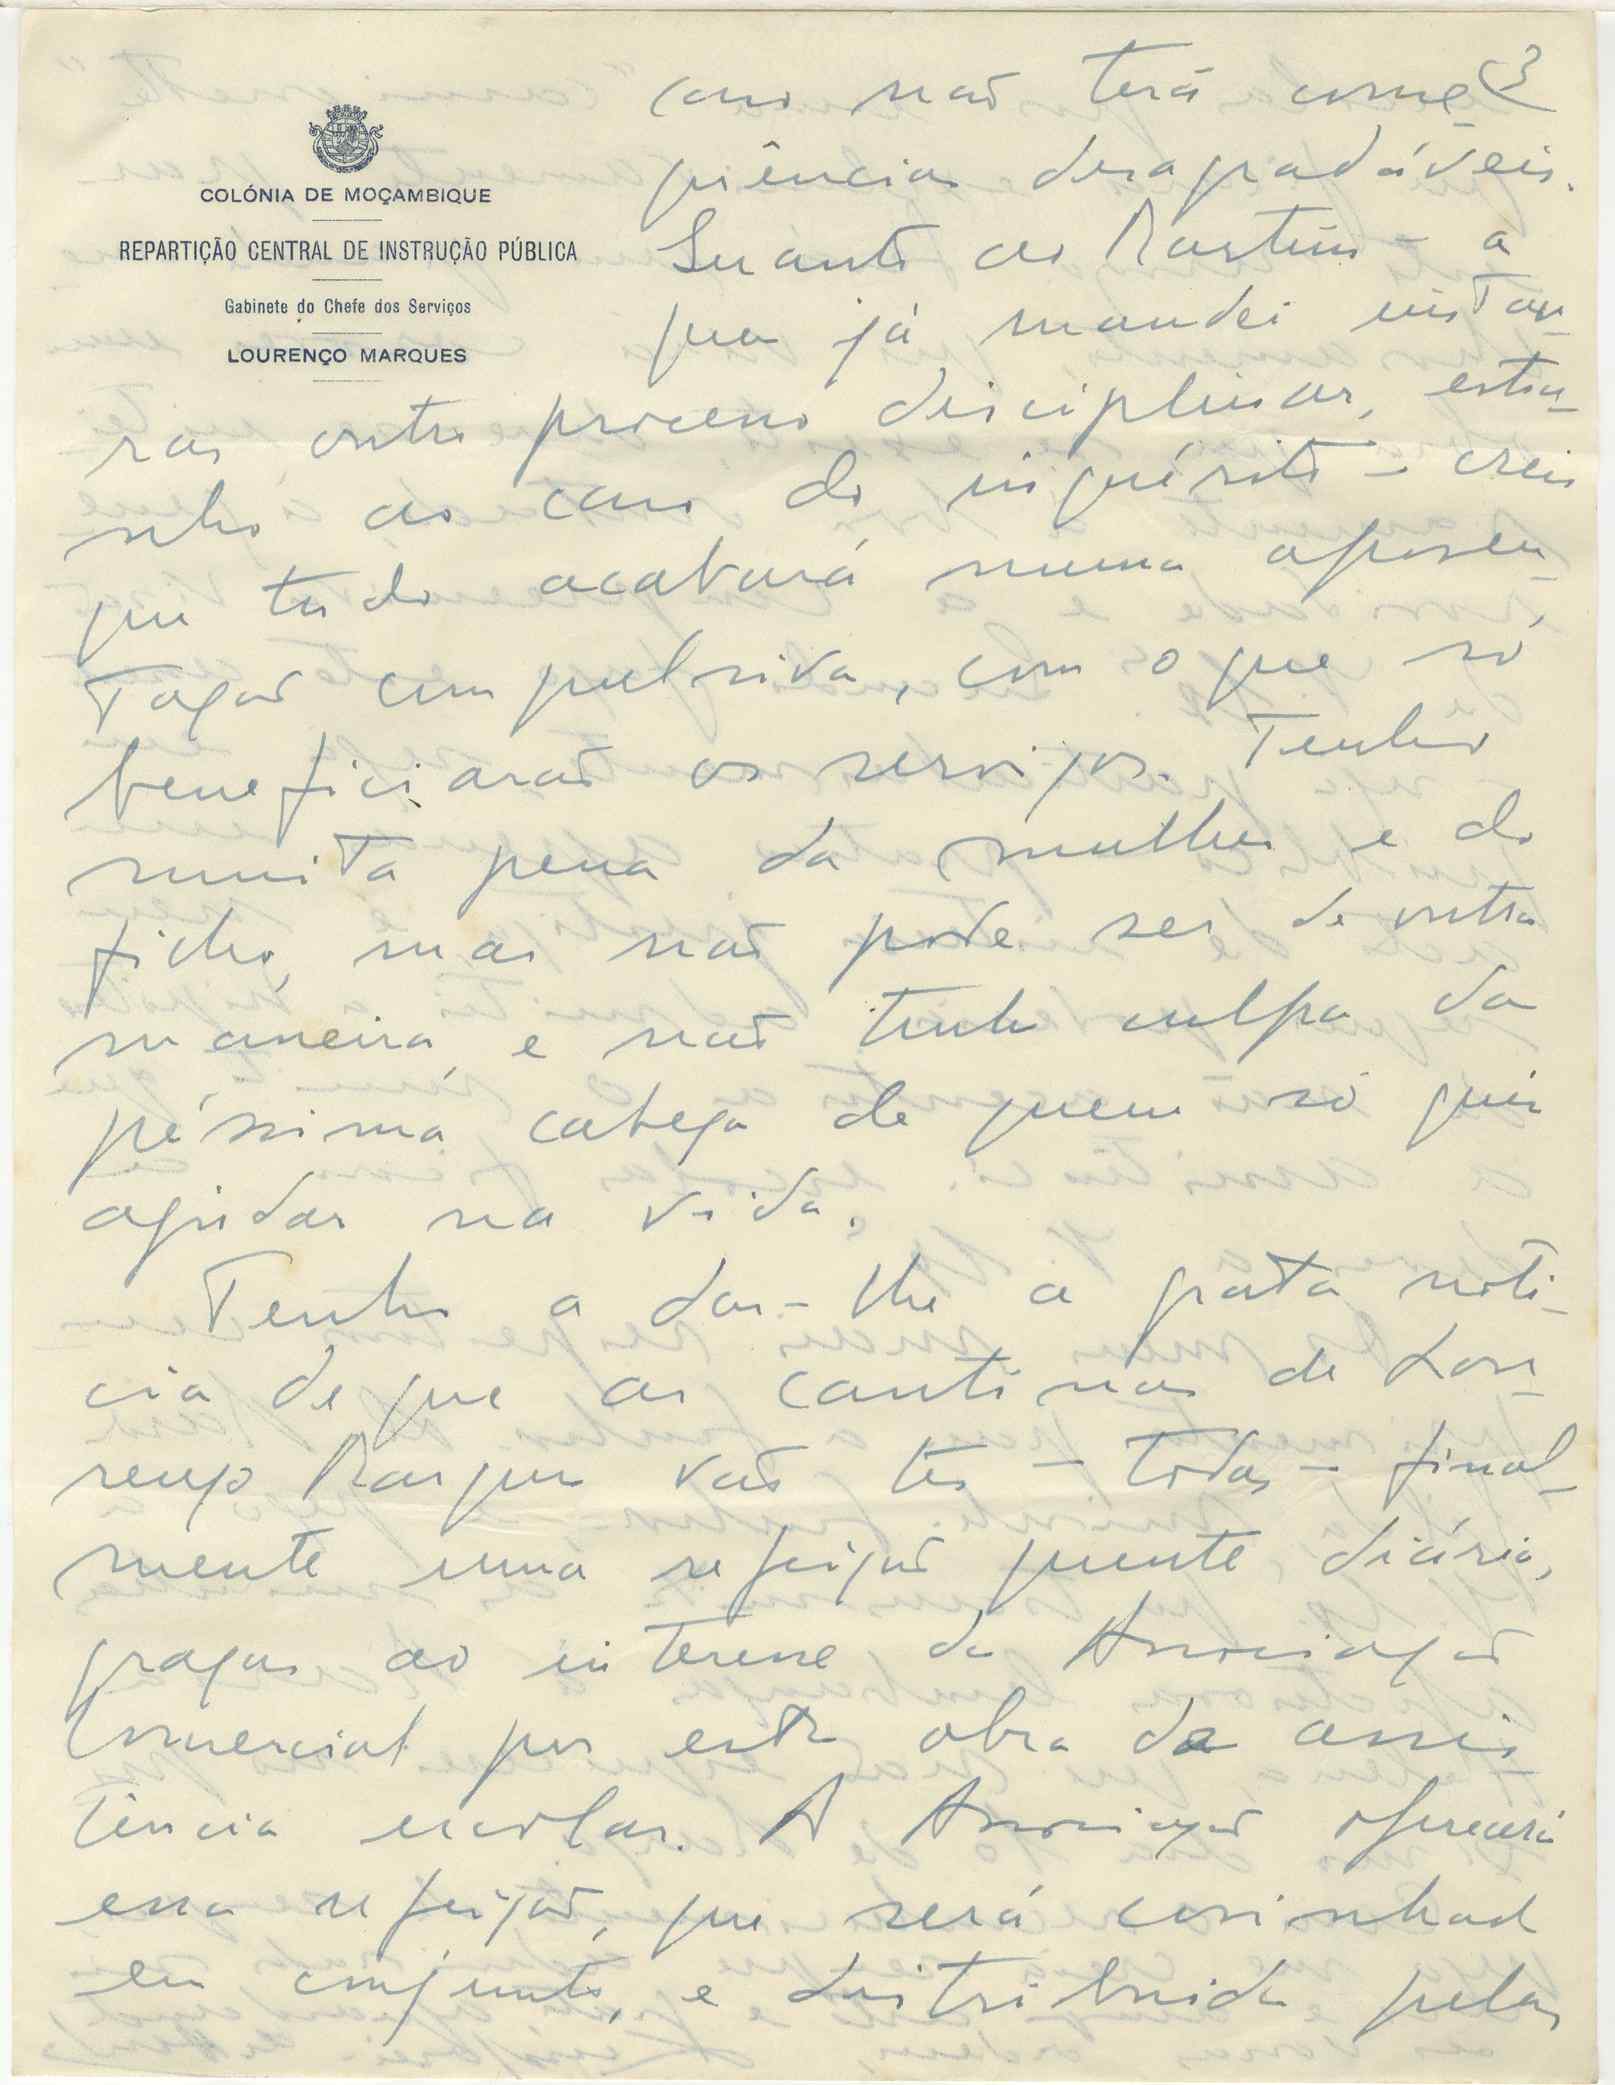 3
COLÓNIA DE MOÇAMBIQUE
REPARTIÇÃO CENTRAL DE INSTRUÇÃO PÚBLICA
Gabinete do Chefe dos Serviços
LOURENÇO MARQUES
caso não terá conse-
qüências desagradáveis.
Quanto ao Martins – a
quem já mandei instau-
rar outro processo disciplinar, estra-
nho ao caso do inquérito – creio
que tudo acabará numa aposen-
tação compulsiva, com o que só
beneficiarão os serviços. Tenho
muita pena da mulher e do
filho, mas não pode ser de outra
maneira, e não tenho culpa da
péssima cabeça de quem só quis
ajudar na vida.
Tenho a dar-lhe a grata notí-
cia de que as cantinas de Lou-
renço Marques vão ter – todas – final-
mente uma refeição quente diária,
graças ao interesse da Associação
Comercial por esta obra de assis-
tência escolar. A Associação oferecerá
essa refeição, que será cosinhad
em conjunto, e distribuida pelas